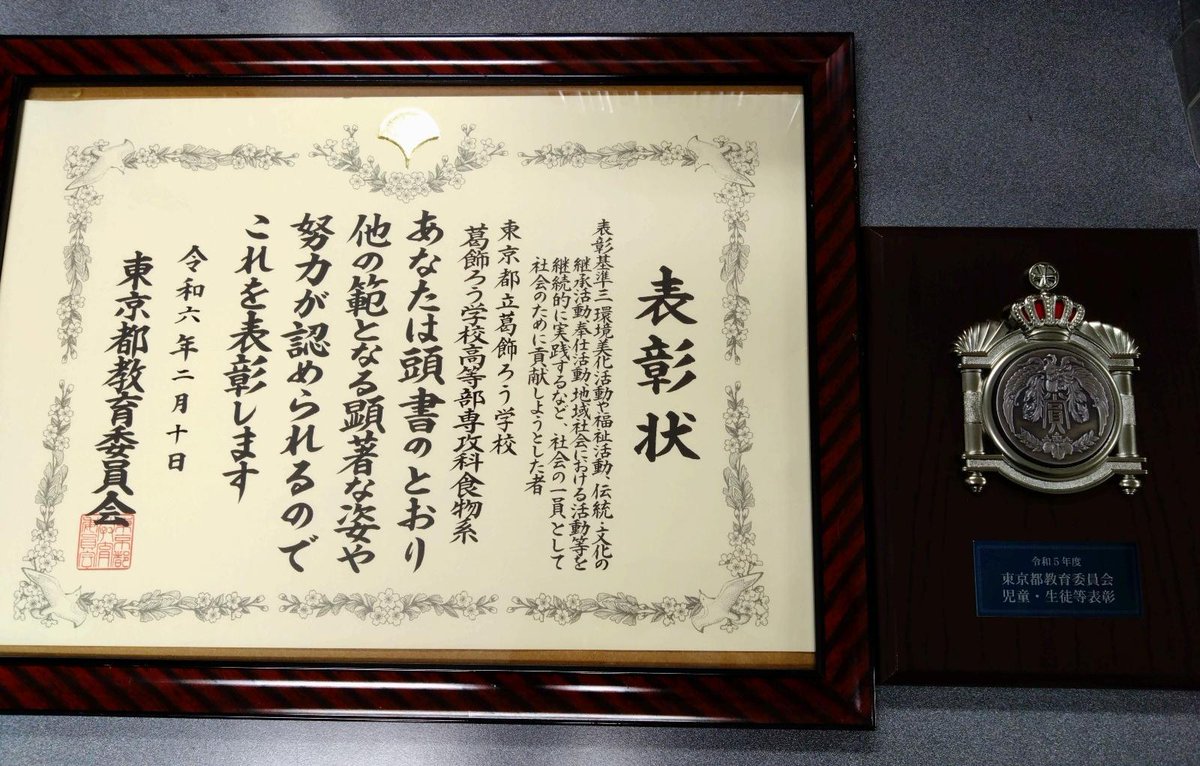 表彰状
表彰基準三 環境美化活動や福祉活動、伝統・文化の
継承活動、奉仕活動、地域社会における活動等を
継続的に実践するなど、社会の一員として
社会のために貢献しようとした者
東京都立葛飾ろう学校
葛飾ろう学校高等部専攻科食物系
あなたは頭書のとおり
他の範となる顕著な姿や
努力が認められるので
これを表彰します
令和六年二月十日
東京都教育委員会
賞
令和5年度
東京都教育委員会
児童・生徒等表彰